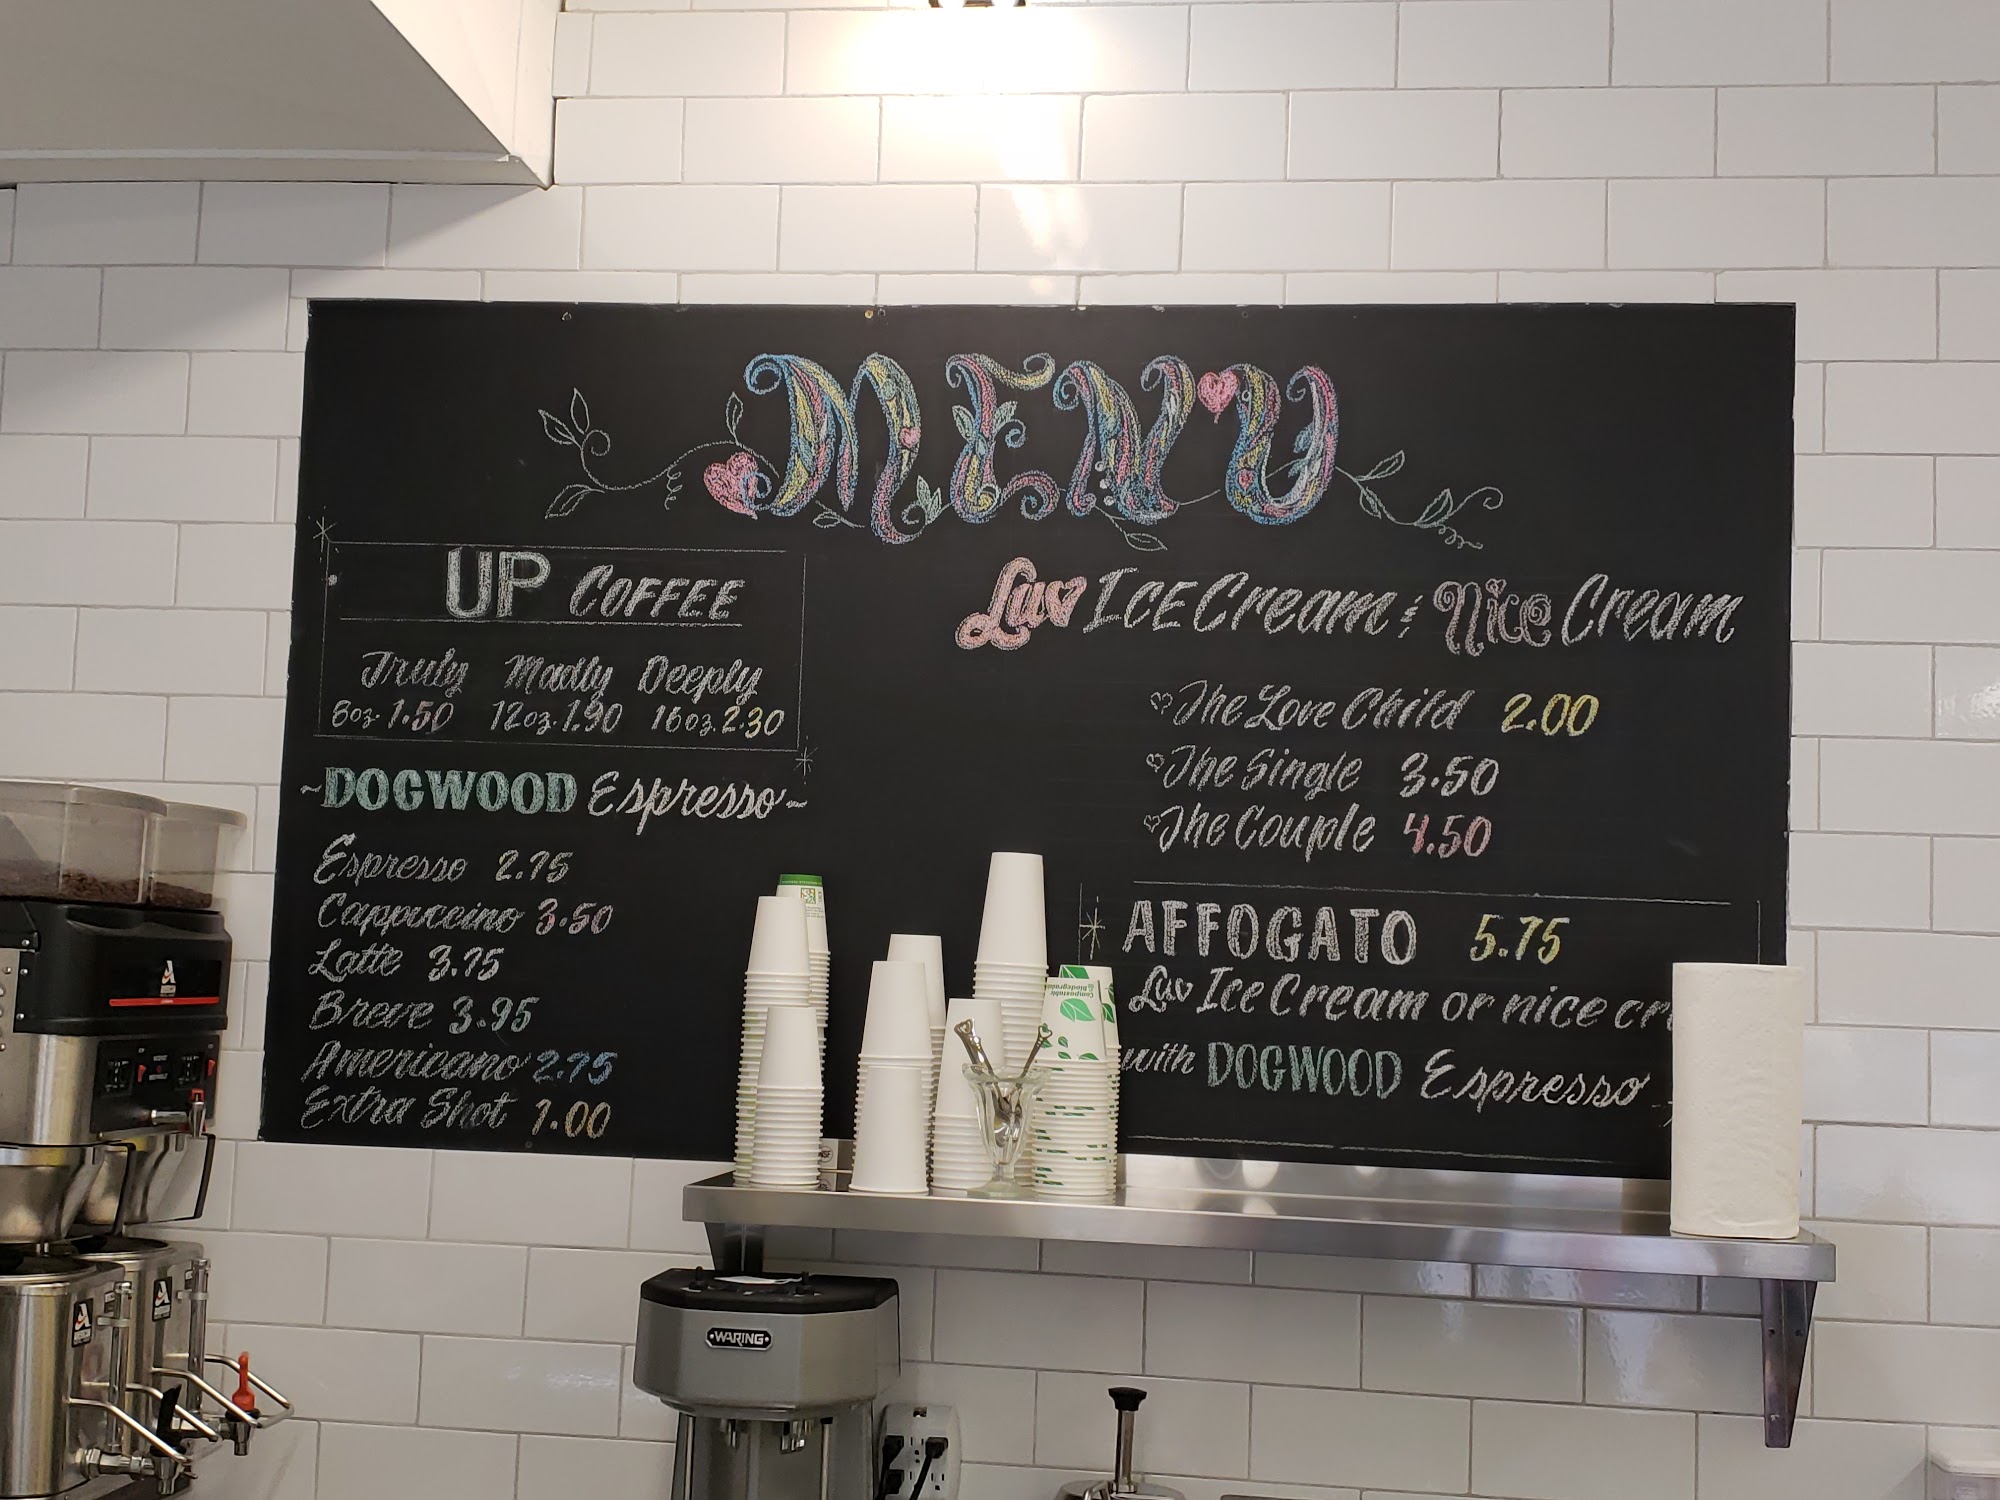 MENU
UP COFFEE
Truly Madly Deeply
8oz. 1.50 12oz. 1.90 16oz. 2.30
~DOGWOOD Espresso~
Espresso 2.75
Cappuccino 3.50
Latte 3.75
Breve 3.95
Americano 2.75
Extra Shot 1.00
Luv ICE Cream & Nice Cream
The Love Child 2.00
The Single 3.50
The Couple 4.50
AFFOGATO 5.75
Luv Ice Cream or nice cr
with DOGWOOD Espresso
Compostable
& Biodegradable
WARING